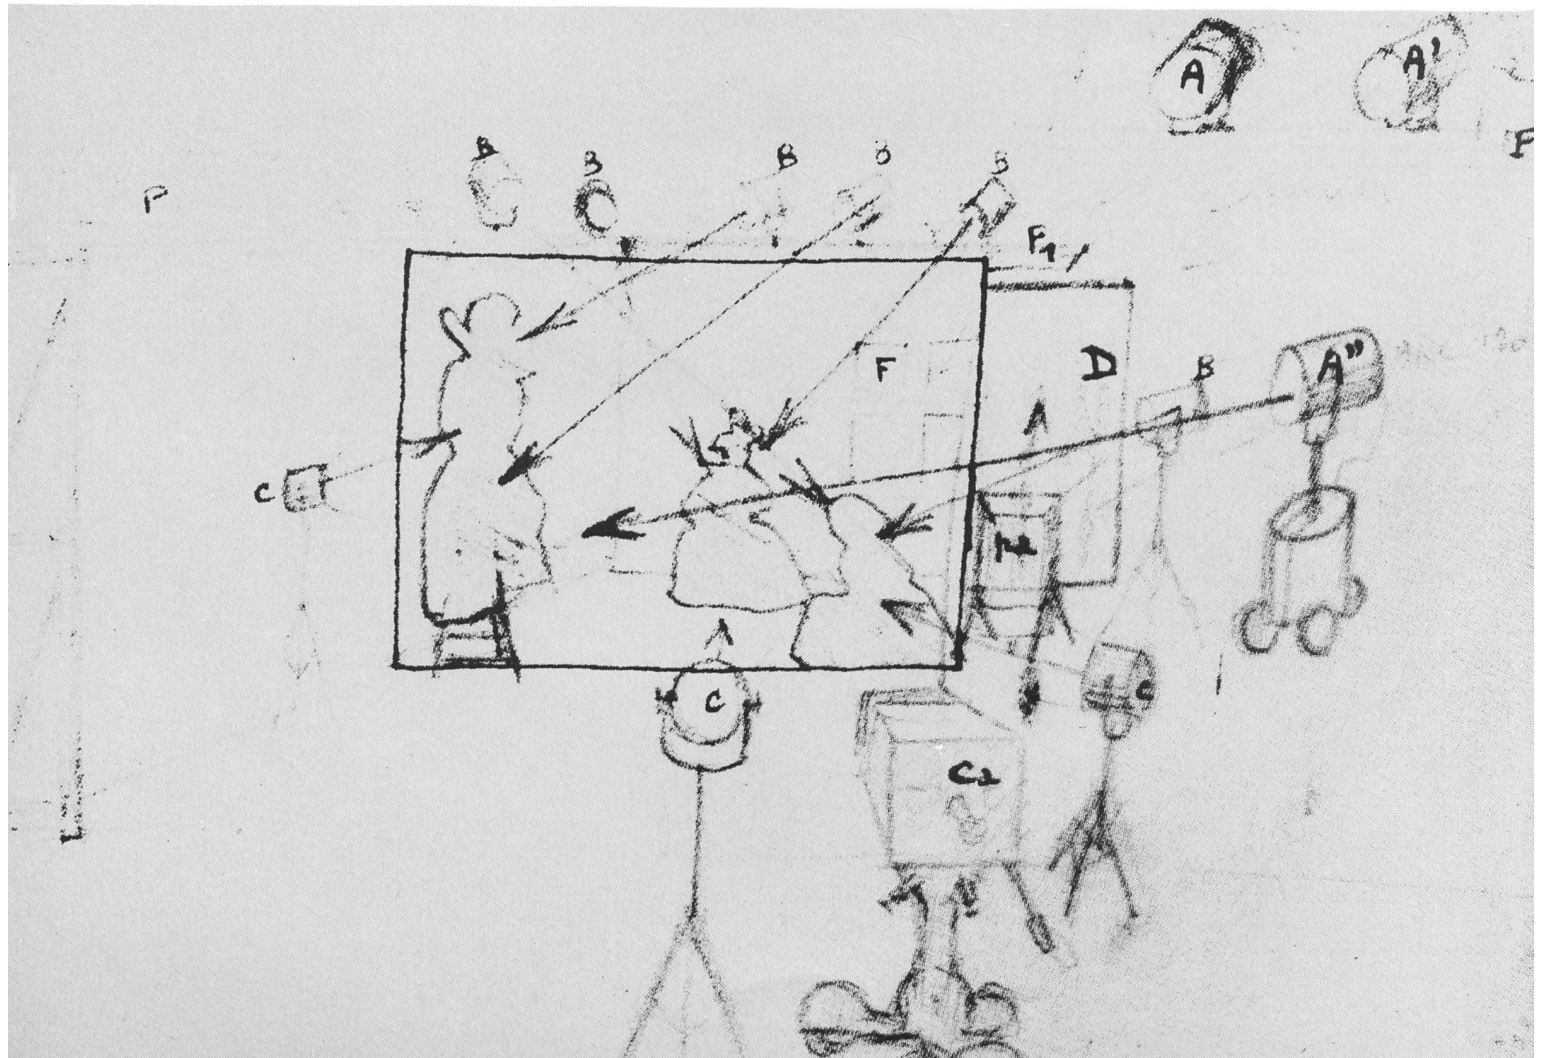 A A'
P
B B B B B
P
F1
F
D
B
A"
C
C
C
C2